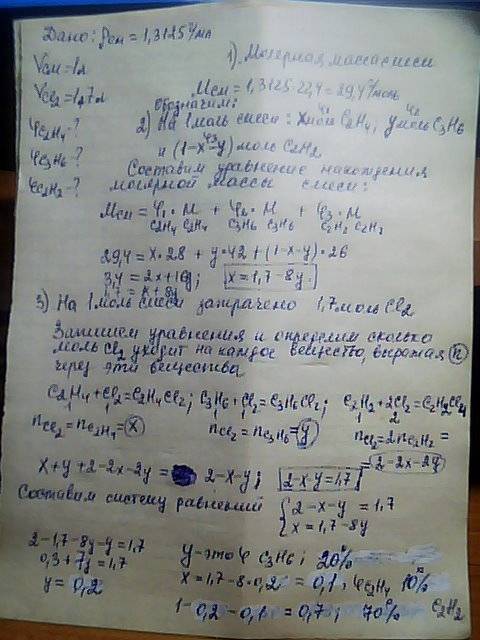 Дано: ρсм = 1,3125 г/мл
1) Молярная масса смеси
Vсм = 1л
Mсм = 1,3125·22,4 = 29,4 г/моль
VCl2 = 1,7 л
обозначим:
φC2H4 - ?
2) На 1 моль смеси: x моль C2H4, y моль C3H6
φ1 φ2
φC3H6 - ?
и (1-x-y) моль C2H2
φ3
Составим уравнение нахождения
φC2H2 - ?
молярной массы смеси:
Mсм = φ1·M + φ2·M + φ3·M
C2H4 C2H4 C3H6 C3H6 C2H2 C2H2
29,4 = x·28 + y·42 + (1-x-y)·26
3,4 = 2x + 16y; x = 1,7 - 8y
1,7 = x + 8y
3) На 1 моль смеси затрачено 1,7 моль Cl2
Запишем уравнения и определим сколько
моль Cl2 уходит на каждое вещество, выражая n
через эти вещества
C2H4 + Cl2 = C2H4Cl2; C3H6 + Cl2 = C3H6Cl2; C2H2 + 2Cl2 = C2H2Cl4
1 1 1 1 1 2
nCl2 = nC2H4 = x nCl2 = nC3H6 = y nCl2 = 2nC2H2 =
= 2-2x-2y
x + y + 2 - 2x - 2y = 2 - x - y; 2-x-y = 1,7
Составим систему уравнений { 2 - x - y = 1,7
x = 1,7 - 8y
2 - 1,7 - 8y - y = 1,7
y - это φ C3H6; 20%
0,3 + 7y = 1,7
x = 1,7 - 8·0,2 = 0,1, φC2H4 10%
y = 0,2
1 - 0,2 - 0,1 = 0,7; 70% C2H2